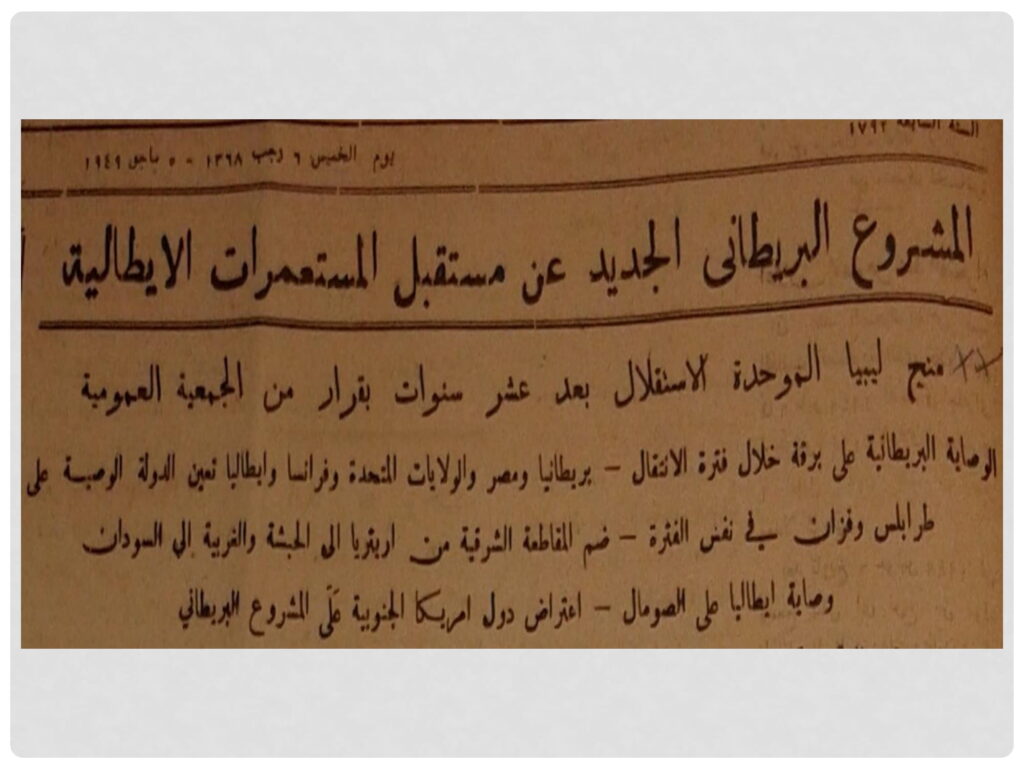 السنة السابعة ١٧٩٢
يوم الخميس ٦ رجب ١٣٦٨ - ٥ مايو ١٩٤٩
المشروع البريطانى الجديد عن مستقبل المستعمرات الايطالية
منح ليبيا الموحدة الاستقلال بعد عشر سنوات بقرار من الجمعية العمومية
الوصاية البريطانية على برقة خلال فترة الانتقال – بريطانيا ومصر والولايات المتحدة وفرانسا وايطاليا تعين الدولة الوصية على
طرابلس وفزان في نفس الفترة – ضم المقاطعة الشرقية من اريتريا الى الحبشة والغربية الى السودان
وصاية ايطاليا على الصومال – اعتراض دول امريكا الجنوبية على المشروع البريطاني